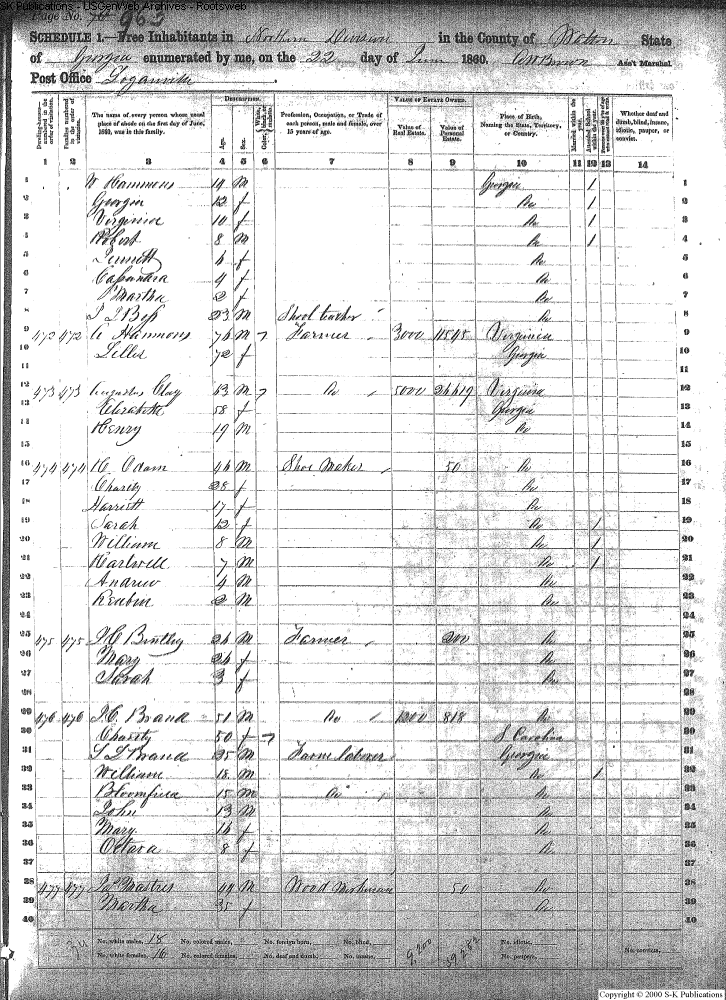 SK Publications - USGenWeb Archives - Rootsweb
Page No. 963
SCHEDULE 1.—Free Inhabitants in Northern Division in the County of Walton State
of Georgia enumerated by me, on the 22 day of June 1860. Ass't Marshal
Post Office Loganville
Dwelling-houses—numbered in the order of visitation. Families numbered in the order of visitation. The name of every person whose usual place of abode on the first day of June, 1860, was in this family. DESCRIPTION. Age. Sex. Color Profession, Occupation, or Trade of each person, male and female, over 15 years of age. VALUE OF ESTATE OWNED. Value of Real Estate. Value of Personal Estate. Place of Birth, Naming the State, Territory, or Country. Married within the year. Attended School within the year. Whether deaf and dumb, blind, insane, idiotic, pauper, or convict.
1 2 3 4 5 6 7 8 9 10 11 12 13 14
1 W Hammons 19 M Georgia 1 1
2 Georgia 12 f Do 1 2
3 Virginia 10 f Do 1 3
4 Robert 8 M Do 1 4
5 f Do 5
6 4 f Do 6
7 Martha 2 f Do 7
8 23 M Do 8
9 472 472 Hammons 74 M Farmer 3000 11545 Virginia 9
10 72 f Georgia 10
11 11
12 473 473 Augustus Clay 63 M Do 5000 24419 Virginia 12
13 Elizabeth 58 f Georgia 13
14 Henry 19 M Do 14
15 15
16 474 474 H. Odam 44 M Shoe Maker 50 Do 16
17 Charity 28 f Do 17
18 Harriett 17 f Do 18
19 Sarah 12 f Do 1 19
20 William 8 M Do 1 20
21 Hartwell 7 M Do 1 21
22 Andrew 4 M Do 22
23 Reubin 2 M Do 23
24 24
25 475 475 24 M Farmer 200 Do 25
26 Mary 24 f Do 26
27 Sarah 3 f Do 27
28 28
29 476 476 Brand 51 M Do 1200 818 Do 29
30 Charity 50 f S Carolina 30
31 Brand 25 M Farm laborer Georgia 31
32 William 18 M Do 1 32
33 Bloomfield 15 M Do Do 33
34 John 13 M Do 34
35 Mary 16 f Do 35
36 Octava 8 f Do 36
37 37
38 477 477 44 M Wood Workman 50 Do 38
39 Martha 35 f Do 39
40 40
No. white males, 18 No. colored males, No. foreign born, No. blind, 9,200 39282 No. idiotic, No. convicts,
No. white females, 16 No. colored females, No. deaf and dumb, No. insane, No. paupers,
Copyright © 2000 S-K Publications